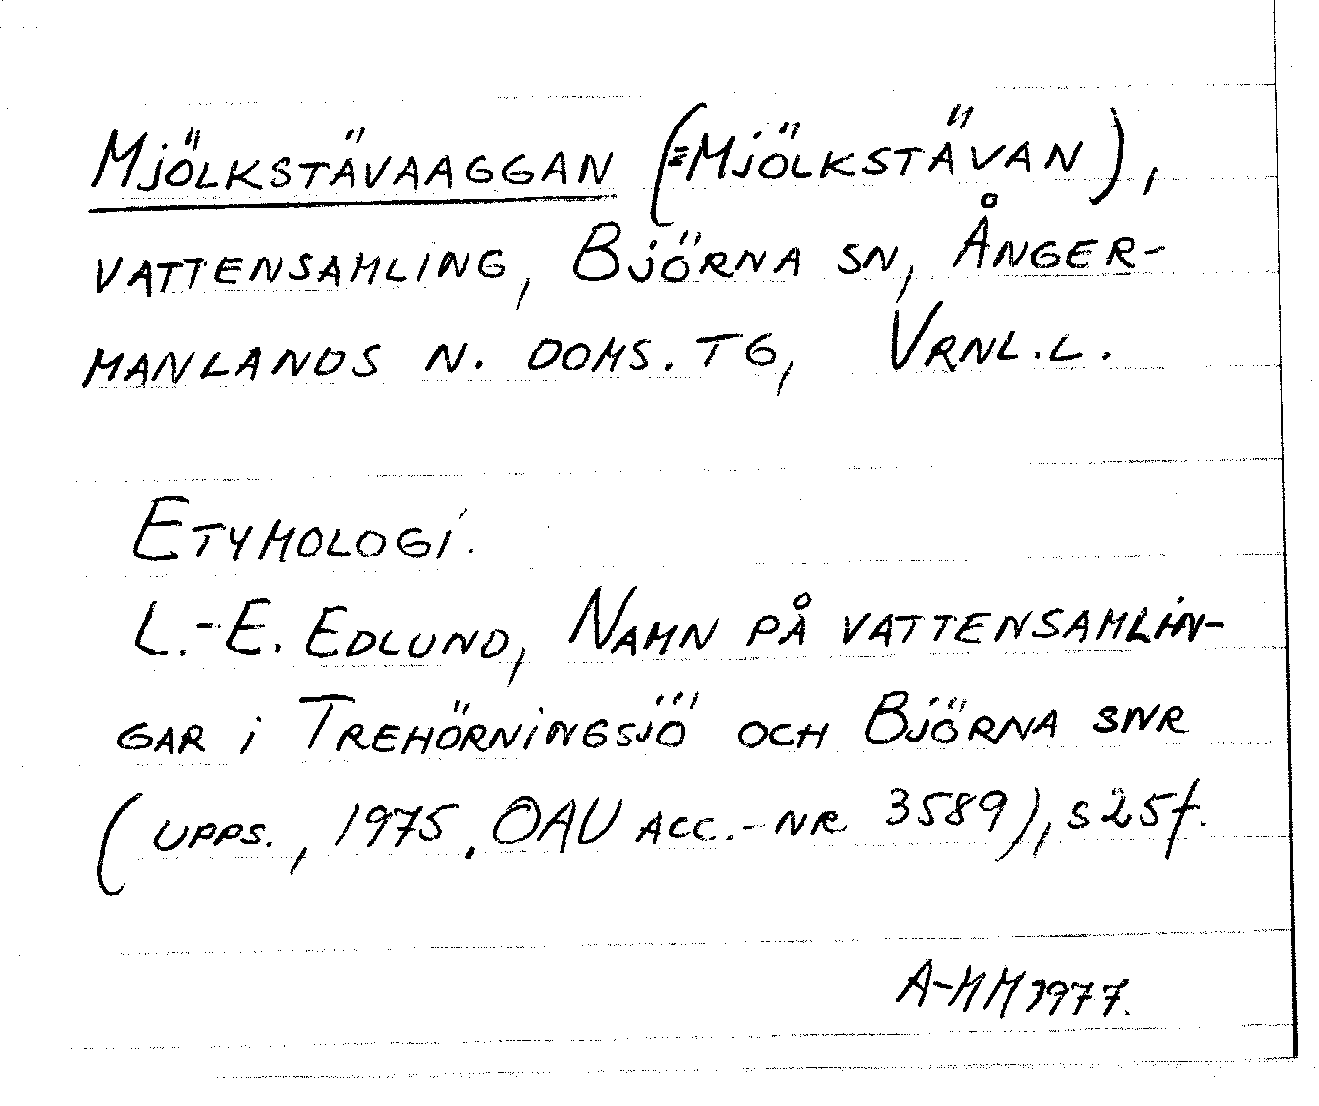 Mjölkstävaaggan (=Mjölkstävan),
vattensamling, Björna sn, Ånger-
manlands n. doms. tg, Vrnl.l.
Etymologi.
L.-E. Edlund, Namn på vattensamlin-
gar i Trehörningsjö och Björna snr
(Upps., 1975, OAU acc.-nr 3589), s 25f.
A-MM 1977.